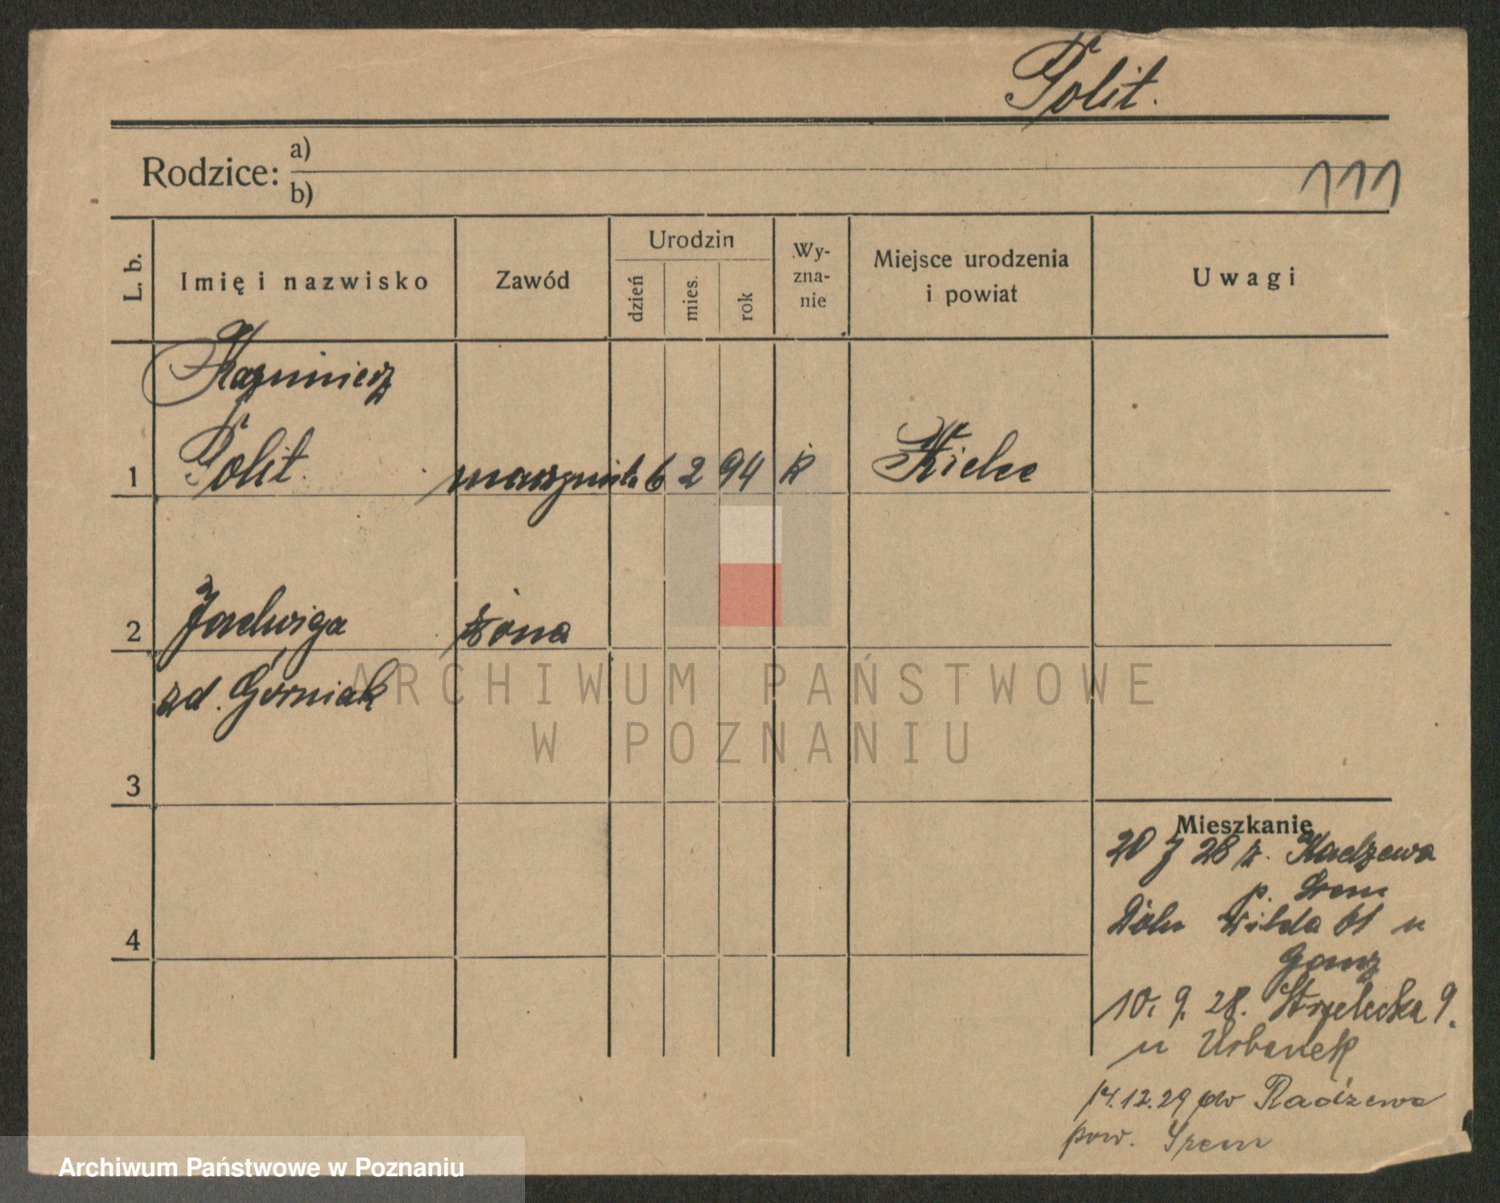 Polit.
Rodzice: a)
b)
111
L. b.
Imię i nazwisko
Zawód
Urodzin
dzień
mies.
rok
Wy-
zna-
nie
Miejsce urodzenia
i powiat
Uwagi
Kazimierz
1 Polit. maszynista 6 2 94 k Kielce
2 Jadwiga żona
zd. Górniak
3
4
Mieszkanie
20 7 28 z. Radzewa
p. Srem
Doln Wilda 61 u
Ganz
10. 9. 28. Strzelecka 9.
u Urbanek
14.12.29 do Radzewo
pow. Srem
ARCHIWUM PAŃSTWOWE
W POZNANIU
Archiwum Państwowe w Poznaniu